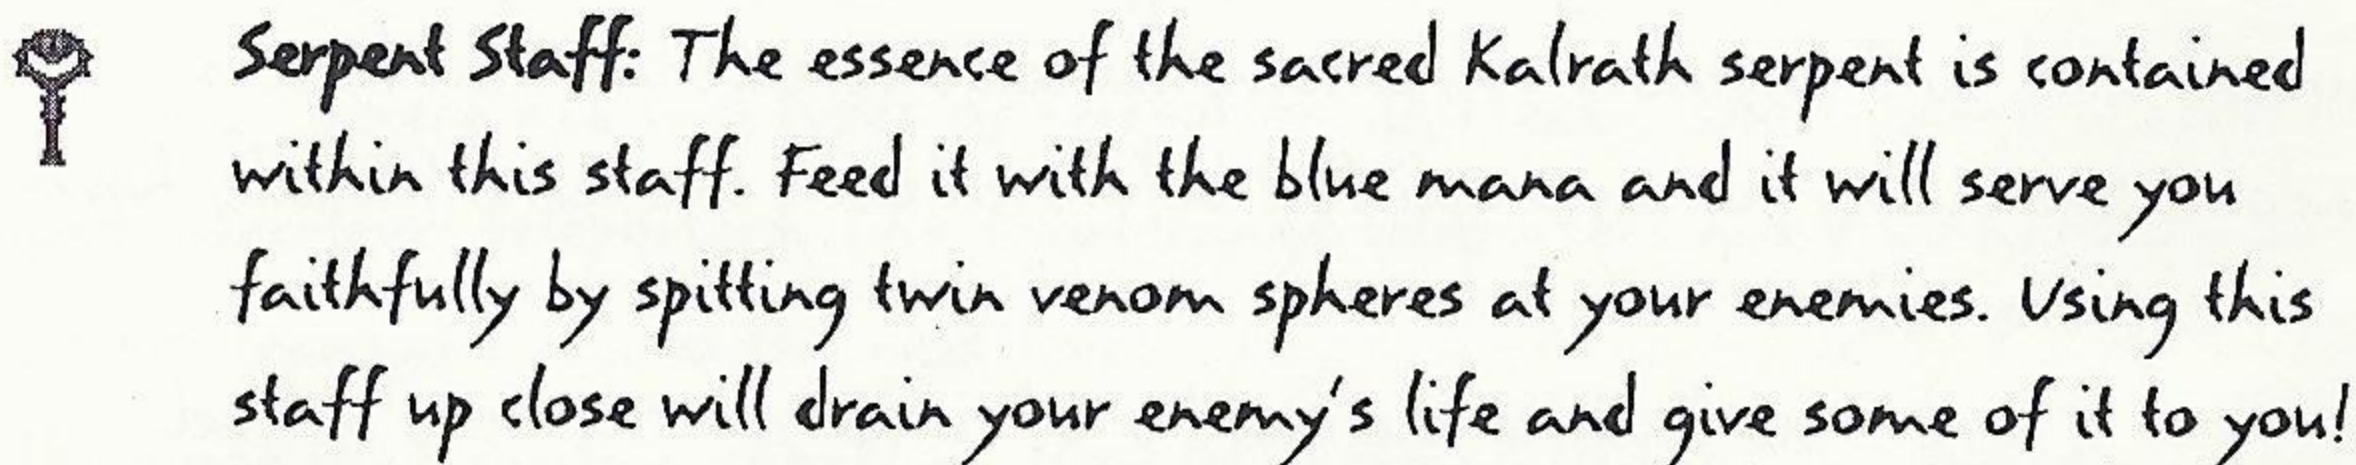 Serpent Staff: The essence of the sacred Kalrath serpent is contained
within this staff. Feed it with the blue mana and it will serve you
faithfully by spitting twin venom spheres at your enemies. Using this
staff up close will drain your enemy's life and give some of it to you!